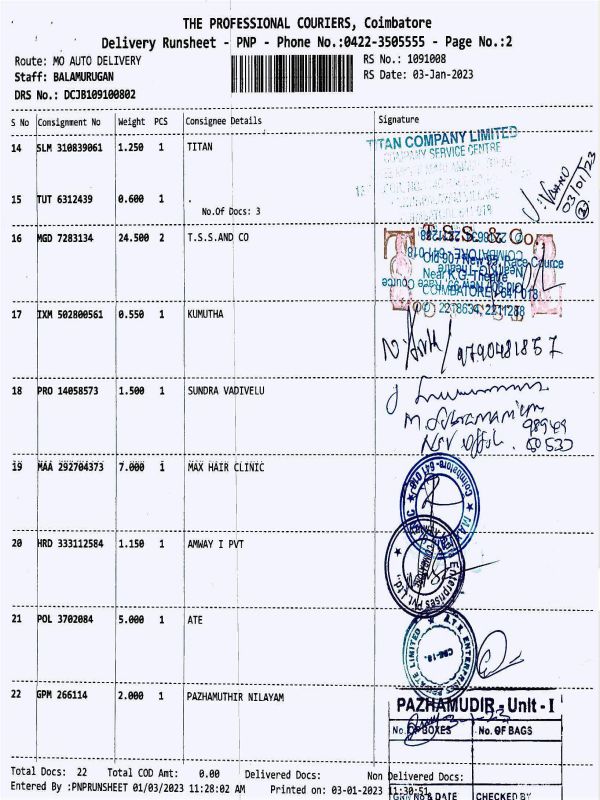 THE PROFESSIONAL COURIERS, Coimbatore
Delivery Runsheet - PNP - Phone No.:0422-3505555 - Page No.:2
Route: MO AUTO DELIVERY
RS No.: 1091008
Staff: BALAMURUGAN
RS Date: 03-Jan-2023
DRS No.: DCJB109100802
S No Consignment No Weight PCS Consignee Details Signature
14 SLM 310839061 1.250 1 TITAN
TITAN COMPANY LIMITED
COMPANY SERVICE CENTRE
03/01/23
15 TUT 6312439 0.600 1 .
No.Of Docs: 3
16 MGD 7283134 24.500 2 T.S.S.AND CO
T.S.S. & Co.
Old 907 New 99, Race Cource
Near K.G. Theatre
COIMBATORE - 641 018
2218634, 2211288
17 IXM 502800561 0.550 1 KUMUTHA
9790481857
18 PRO 14058573 1.500 1 SUNDRA VADIVELU
19 MAA 292704373 7.000 1 MAX HAIR CLINIC
Coimbatore-641 018
20 HRD 333112584 1.150 1 AMWAY I PVT
Enterprises Pvt. Ltd.,
21 POL 3702084 5.000 1 ATE
A.T.E. ENTERPRISES PRIVATE LIMITED
CBE-18.
22 GPM 266114 2.000 1 PAZHAMUTHIR NILAYAM
PAZHAMUDIR - Unit - I
3-1-23
No. OF BOXES No. OF BAGS
Total Docs: 22 Total COD Amt: 0.00 Delivered Docs: Non Delivered Docs:
Entered By :PNPRUNSHEET 01/03/2023 11:28:02 AM Printed on: 03-01-2023 11:30:51
GRN No & DATE CHECKED BY